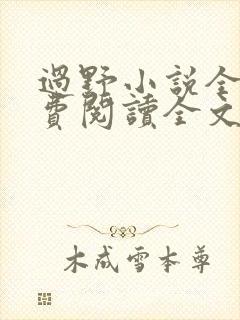 過野小説全
費閱讀全文
木成雪本尊